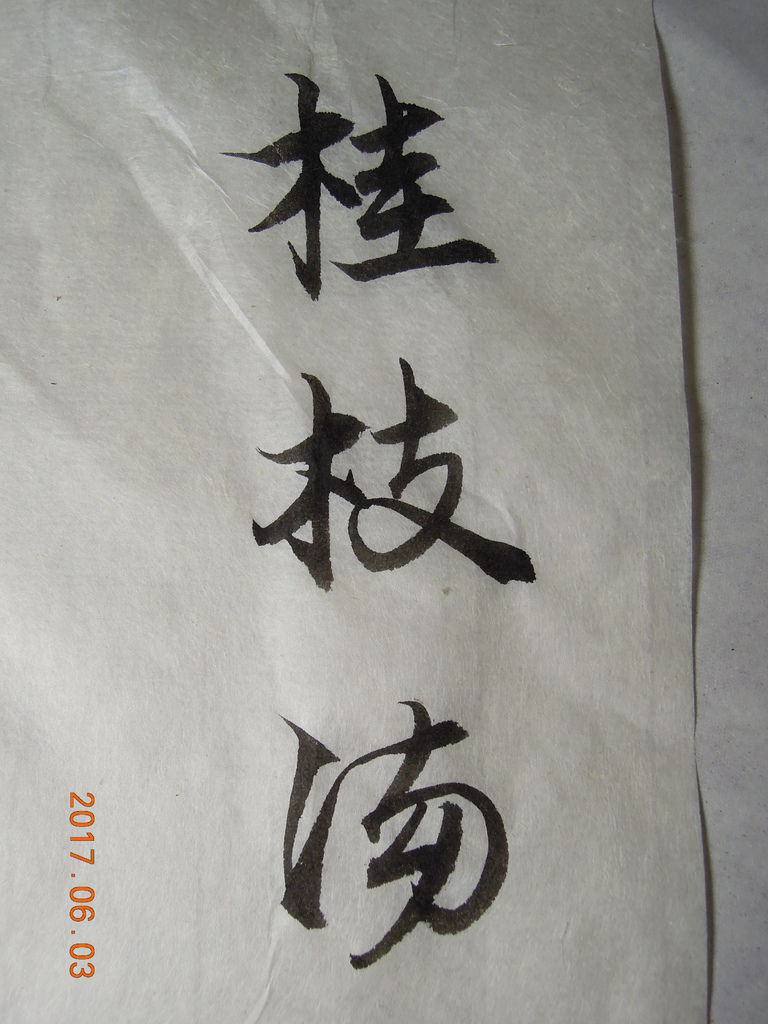 桂枝湯
2017.06.03